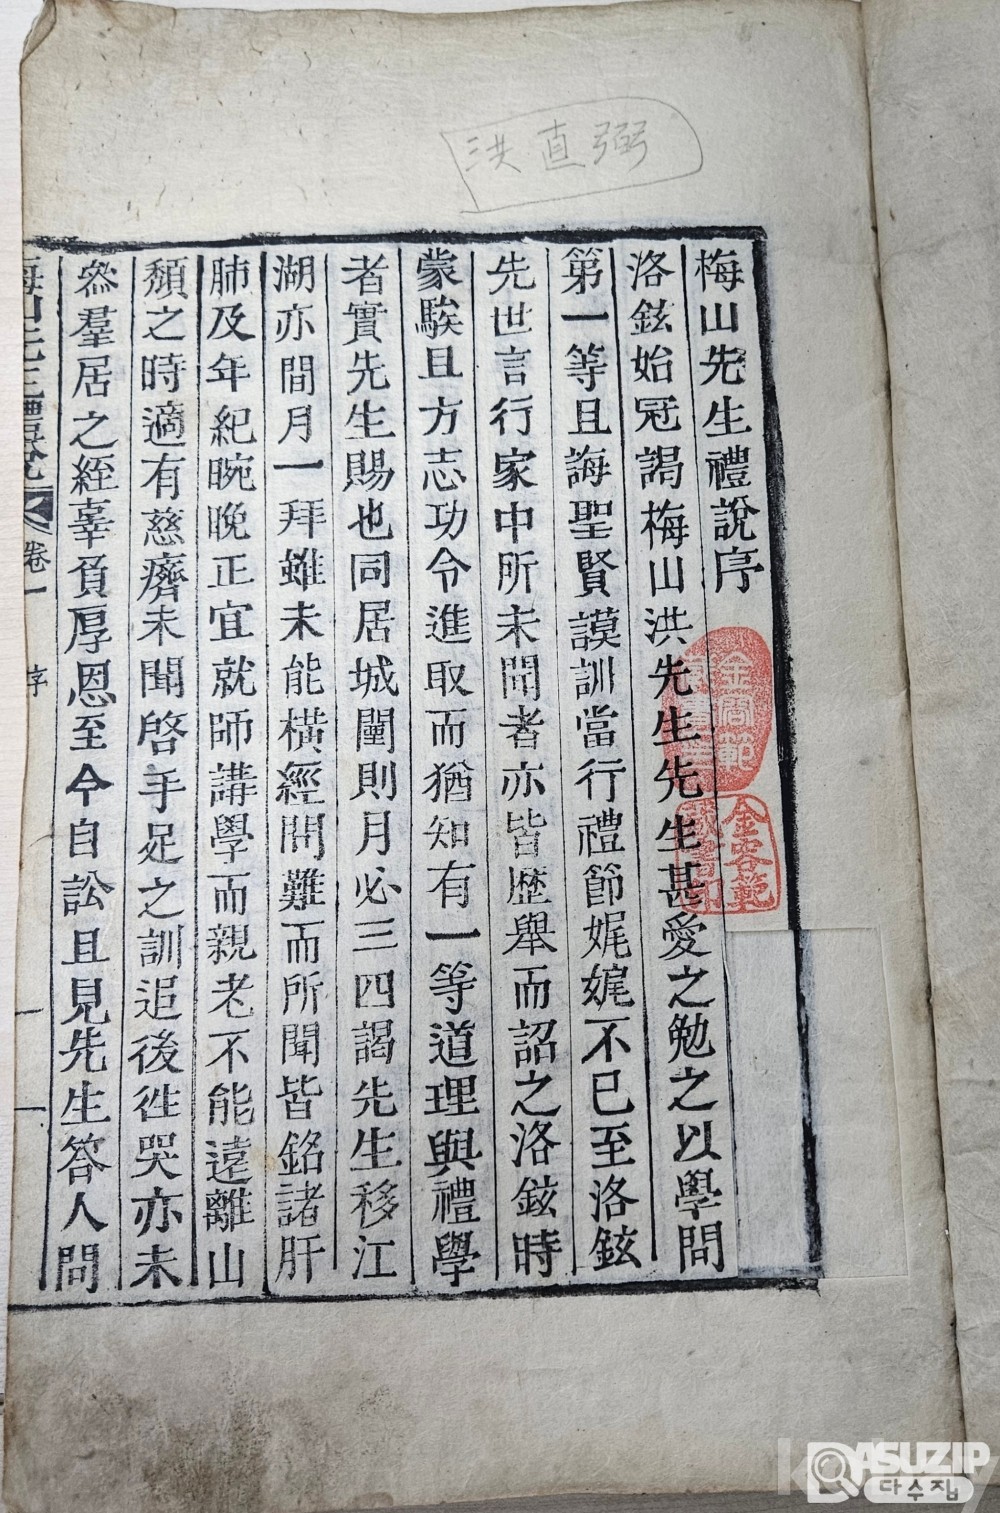 洪直弼
梅山先生禮說序
洛鉉始冠謁梅山洪先生先生甚愛之勉之以學問
第一等且誨聖賢謨訓當行禮節娓娓不已至洛鉉
先世言行家中所未聞者亦皆歷舉而詔之洛鉉時
蒙騃且方志功令進取而猶知有一等道理與禮學
者實先生賜也同居城闉則月必三四謁先生移江
湖亦間月一拜雖未能橫經問難而所聞皆銘諸肝
肺及年紀晼晚正宜就師講學而親老不能遠離山
頹之時適有慈癠未聞啓手足之訓追後往哭亦未
叅羣居之絰辜負厚恩至今自訟且見先生答人問
梅山先生禮說 卷一 序 一
金容範
藏書印
ASUZIP
다수집